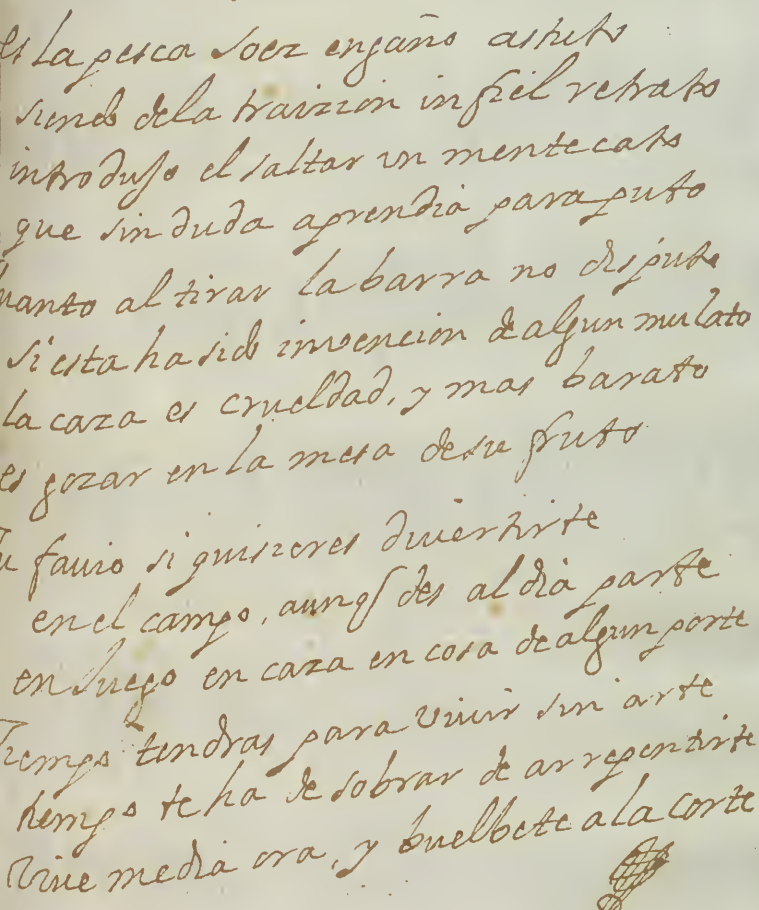 es la pesca soez engaño astuto
siendo dela traizion infiel retrato
introdujo el saltar un mentecato
que sin duda aprendia para puto
quanto al tirar la barra no disputo
si esta ha sido invencion de algun mulato
la caza es crueldad, y mas barato
es gozar en la mesa de su fruto
Tu favio si quisieres divertirte
en el campo, aunq des al dia parte
en juego en caza en cosa de algun porte
Tiempo tendras para vivir sin arte
tiempo te ha de sobrar de arrepentirte
Vive media ora, y buelbete a la Corte